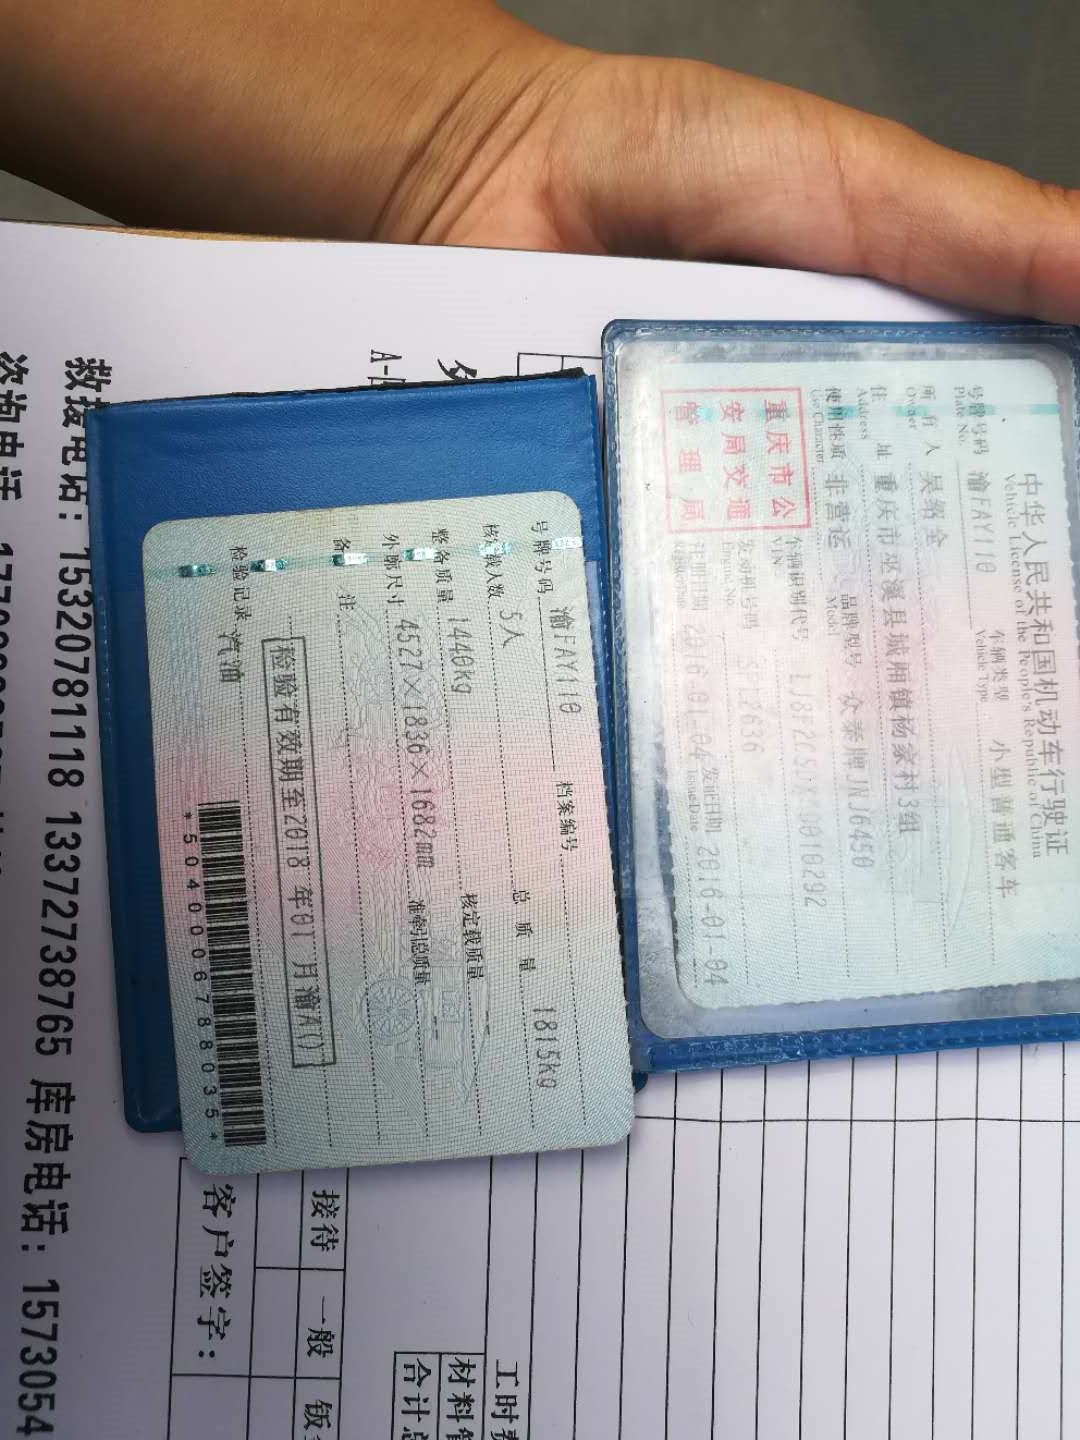 中华人民共和国机动车行驶证
Vehicle License of the People's Republic of China
号牌号码 渝FAY110 车辆类型 小型普通客车
Plate No. Vehicle Type
所有人 吴
Owner
住址 重庆市巫溪县城厢镇杨家村3组
Address
使用性质 非营运 品牌型号 众泰牌JNJ6450
Use Character Model
车辆识别代号
VIN
发动机号码
Engine No.
注册日期 2016-01-04 发证日期 2016-01-04
Issue Date
重庆市公
安局交通
管理局
号牌号码 渝FAY110 档案编号
核定载人数 5人 总质量 1815kg
整备质量 1440kg 核定载质量 --
外廓尺寸 4527×1836×1682mm 准牵引总质量 --
备注
检验有效期至2018年01月渝A()
检验记录 汽油
*5040006788035*
A-
接待 一般
客户签字:
工时费
材料
合计
救援电话: 15320781118 13372738765 库房电话: 1573054
咨询电话